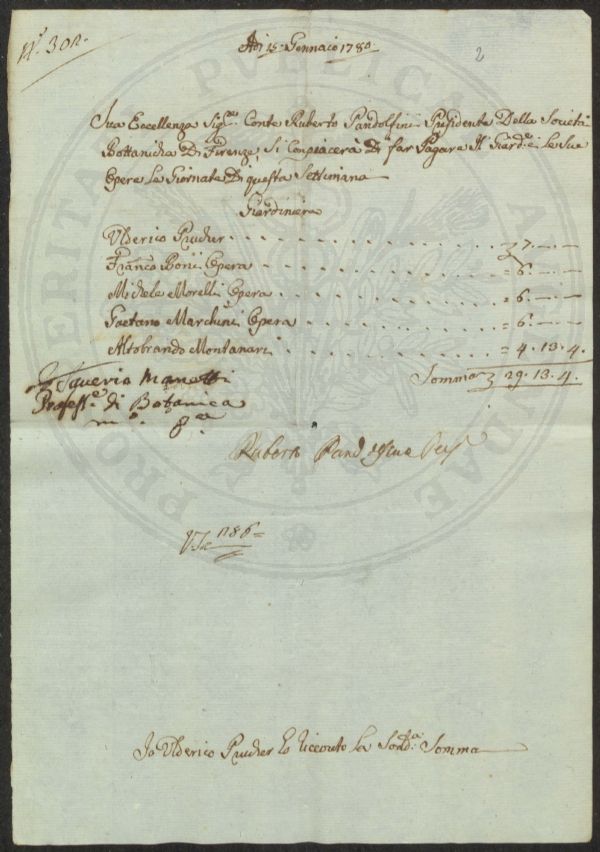 N.° 302.
Adì 15: Gennaio 1780.
2
Sua Eccellenza Sig.re Conte Ruberto Pandolfini Presidente Della Società
Bottanicha Di Firenze, Si Conpiacerà Di far Pagare Il Giard.e Le Sue
Opere Le Giornate Di questa Settimana
Giardiniera
Ulderico Prucher . . . . . . . . = 7. — —
Franco Boni Opera . . . . . . . . = 6. — —
Michele Morelli Opera . . . . . . . . = 6. — —
Gaetano Marchini Opera . . . . . . . . = 6. — —
Altobrando Montanari . . . . . . . . = 4. 13. 4.
Saverio Manetti
Somma 29. 13. 4.
Profess.e di Botanica
m.o
Ruberto
1186=
Io Ulderico Prucher ho riceuto La Sond.a Somma
PRO VERITATE PUBLICA